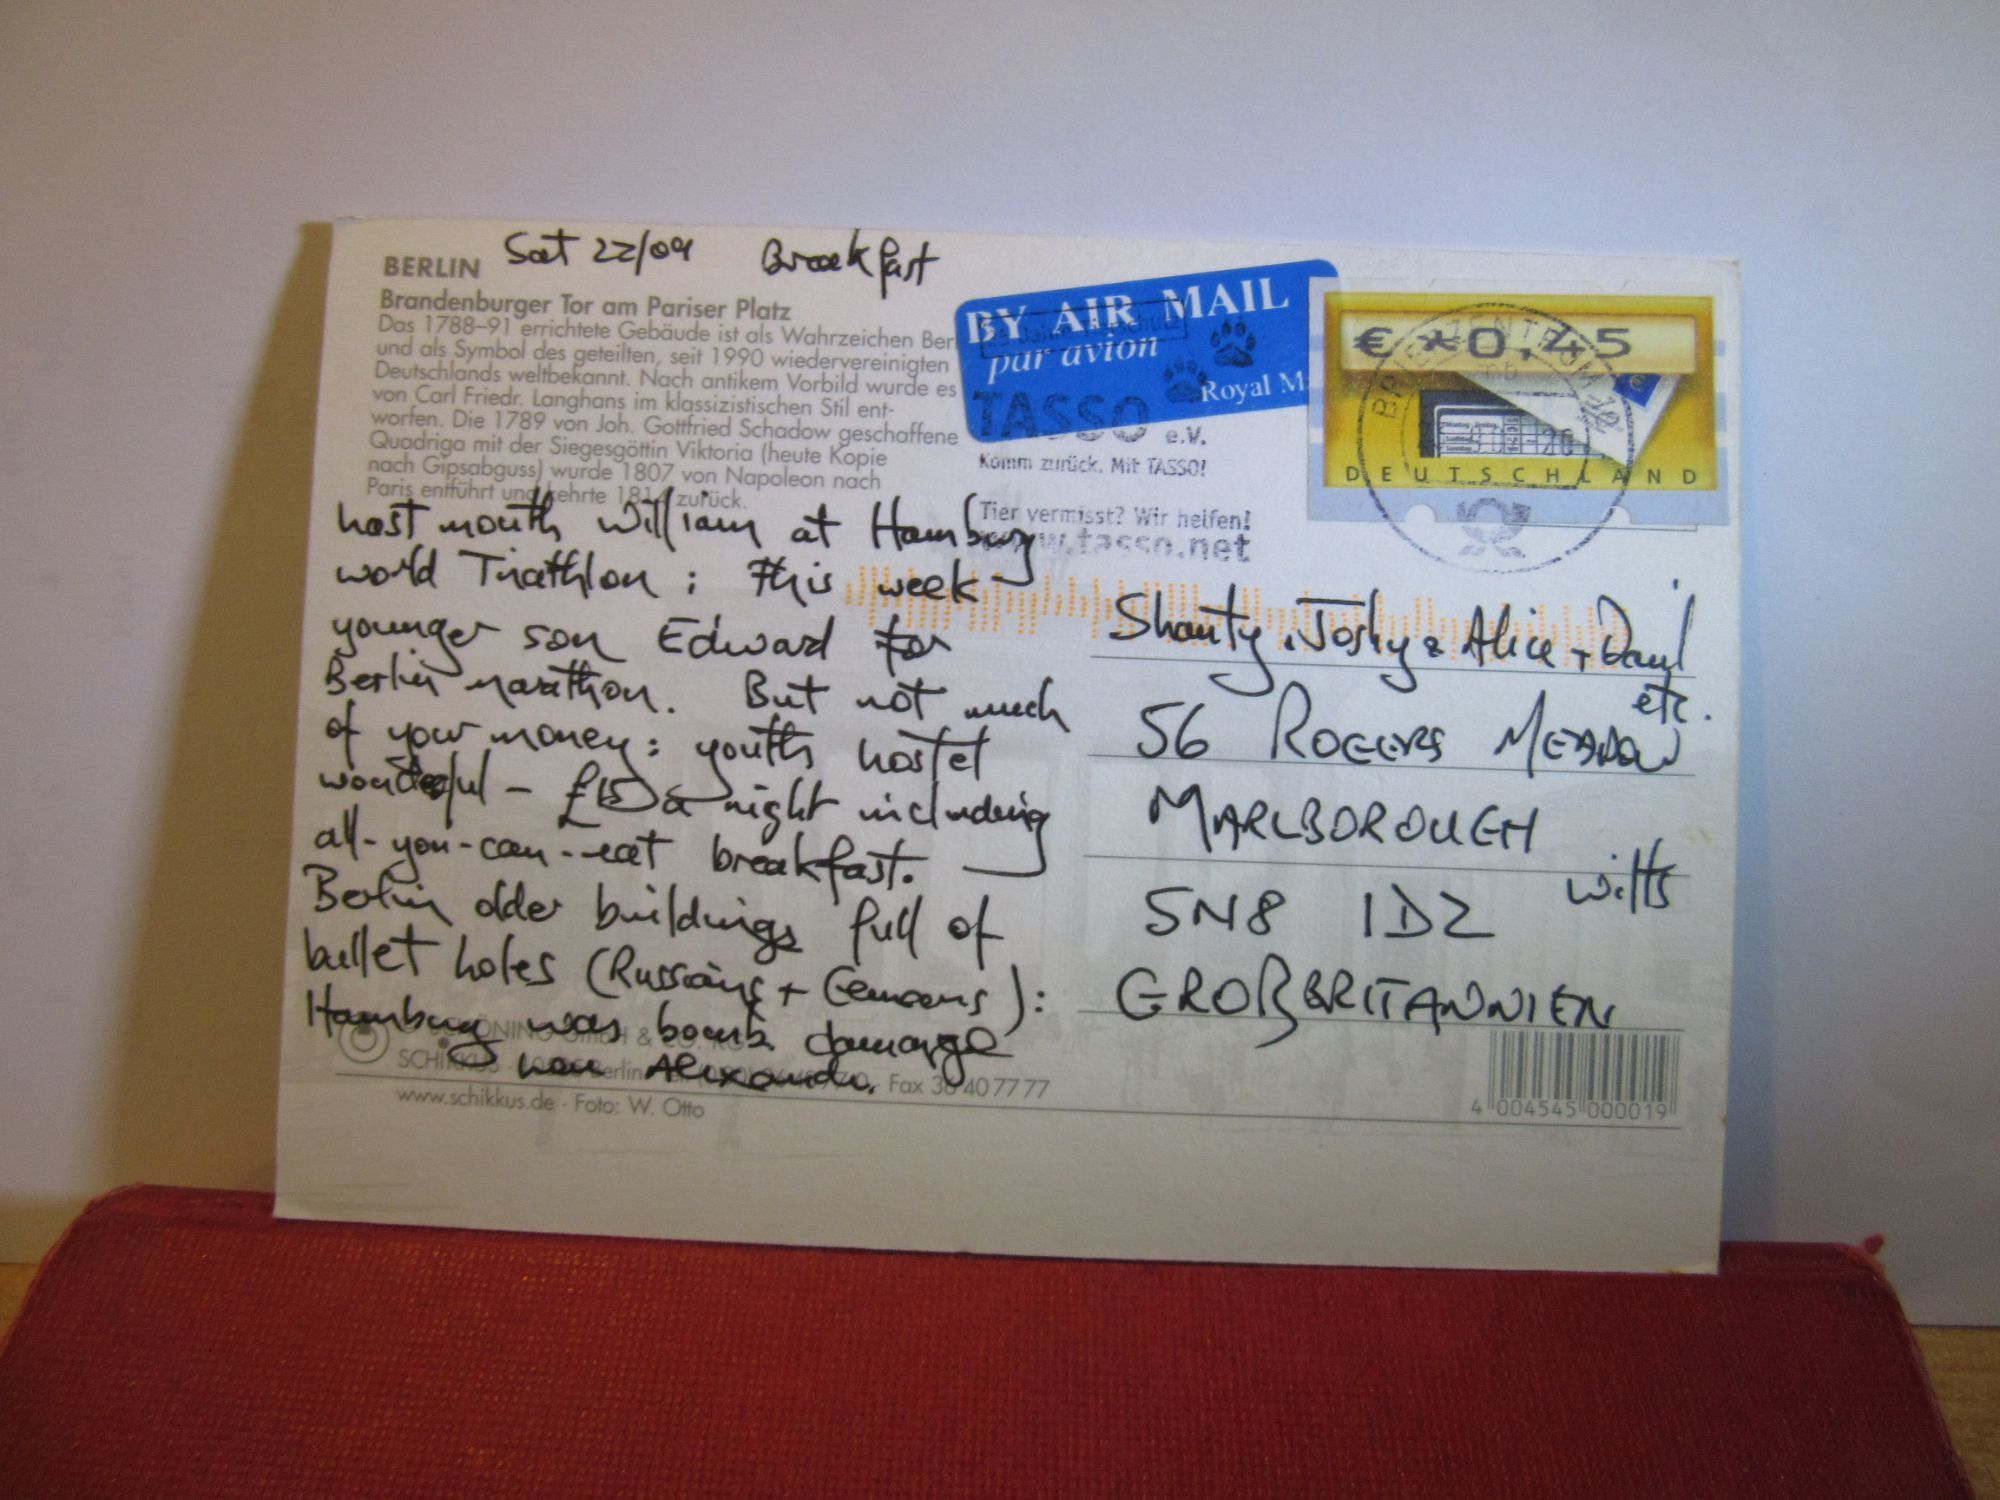 BERLIN Sat 22/09 Breakfast
Brandenburger Tor am Pariser Platz
Das 1788–91 errichtete Gebäude ist als Wahrzeichen Ber
und als Symbol des geteilten, seit 1990 wiedervereinigten
Deutschlands weltbekannt. Nach antikem Vorbild wurde es
von Carl Friedr. Langhans im klassizistischen Stil ent-
worfen. Die 1789 von Joh. Gottfried Schadow geschaffene
Quadriga mit der Siegesgöttin Viktoria (heute Kopie
nach Gipsabguss) wurde 1807 von Napoleon nach
Paris entführt und kehrte 1814 zurück.
Last month William at Hamburg
world Triathlon ; this week
younger son Edward for
Berlin marathon. But not much
of your money: youth hostel
wonderful – £15 a night including
all-you-can-eat breakfast.
Berlin older buildings full of
bullet holes (Russians + Germans):
Hamburg was bomb damage
SCHIKKUS Berlin Fax 38 40 77 77
www.schikkus.de · Foto: W. Otto
BY AIR MAIL
par avion
Royal M
TASSO e.V.
Komm zurück. Mit TASSO!
Tier vermisst? Wir helfen!
www.tasso.net
€*0,45
BRIEFZENTRUM
DEUTSCHLAND
Shanty, Joshy & Alice + Paul
etc.
56 ROGERS MEADOW
MARLBOROUGH
Wilts
SN8 1DZ
GROßBRITANNIEN
4 004545 000019